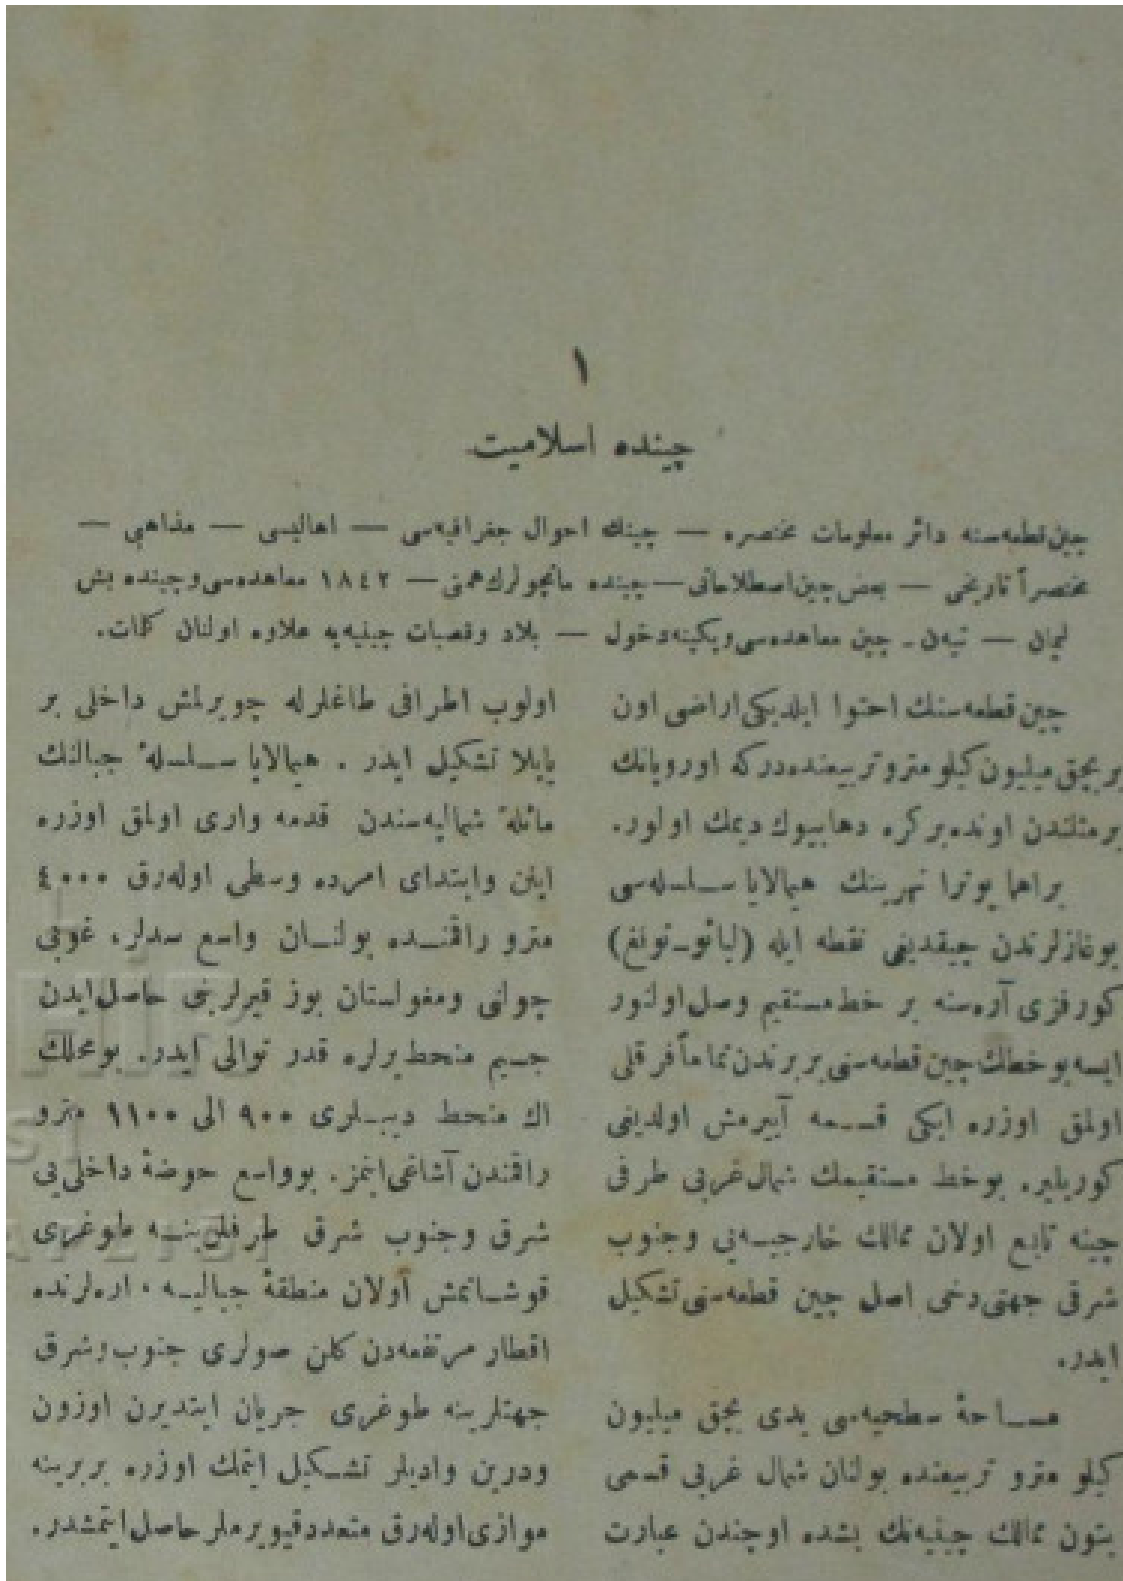 ١
چينده اسلاميت
چين قطعه‌سنه دائر معلومات مختصره — چينك احوال جغرافيه‌سى — اهاليسى — مذاهبى —
مختصراً تاريخى — بعض چين اصطلاحاتى — چينده مانچولرك همتى — ١٨٤٢ معاهده‌سى و چينده بش
ليمان — تيه‌ن ـ چين معاهده‌سى و پكينه دخول — بلاد و قصبات چينيه‌يه علاوه اولنان كلمات.
چين قطعه‌سنك احتوا ايلديكى اراضى اون
بر بچق ميليون كيلو مترو تربيعنده‌در كه اوروپانك
بر مثلندن اونده بر كره دها بيوك ديمك اولور.
براهما پوترا نهرينك هيمالايا سلسله‌سى
بوغازلرندن چيقديغى نقطه ايله (لياؤ ـ تونغ)
كورفزى آره‌سنه بر خط مستقيم وصل اولنور
ايسه بو خطك چين قطعه‌سنى بر برندن تماماً فرقلى
اولمق اوزره ايكى قسمه آييرمش اولديغى
كوريلير. بو خط مستقيمك شمال غربى طرفى
چينه تابع اولان ممالك خارجيه‌يى و جنوب
شرقى جهتى دخى اصل چين قطعه‌سنى تشكيل
ايدر.
مساحهٔ سطحيه‌سى يدى بچق ميليون
كيلو مترو تربيعنده بولنان شمال غربى قسمى
بتون ممالك چينيه‌نك بشده اوچندن عبارت
اولوب اطرافى طاغلرله چويرلمش داخلى بر
يايلا تشكيل ايدر . هيمالايا سلسلهٔ جبالنك
مائلهٔ شماليه‌سندن قدمه وارى اولمق اوزره
اينن و ابتداى امرده وسطى اوله‌رق ٤٠٠٠
مترو راقمنده بولنان واسع سدلر، غوبى
چولنى و مغولستان بوز قيرلرينى حاصل ايدن
جسيم منحط يرلره قدر توالى ايدر. بو محلك
اك منحط ديبلرى ٩٠٠ الى ١١٠٠ مترو
راقمندن آشاغى اينمز. بو واسع حوضهٔ داخلى‌يى
شرق و جنوب شرق طرفلرينه طوغرى
قوشاتمش اولان منطقهٔ جباليه ، اره‌لرنده
اقطار مرتفعه‌دن كلن صولرى جنوب و شرق
جهتلرينه طوغرى جريان ايتديرن اوزون
و درين واديلر تشكيل ايتمك اوزره بربرينه
موازى اوله‌رق متعدد قيويرملر حاصل ايتمشدر.